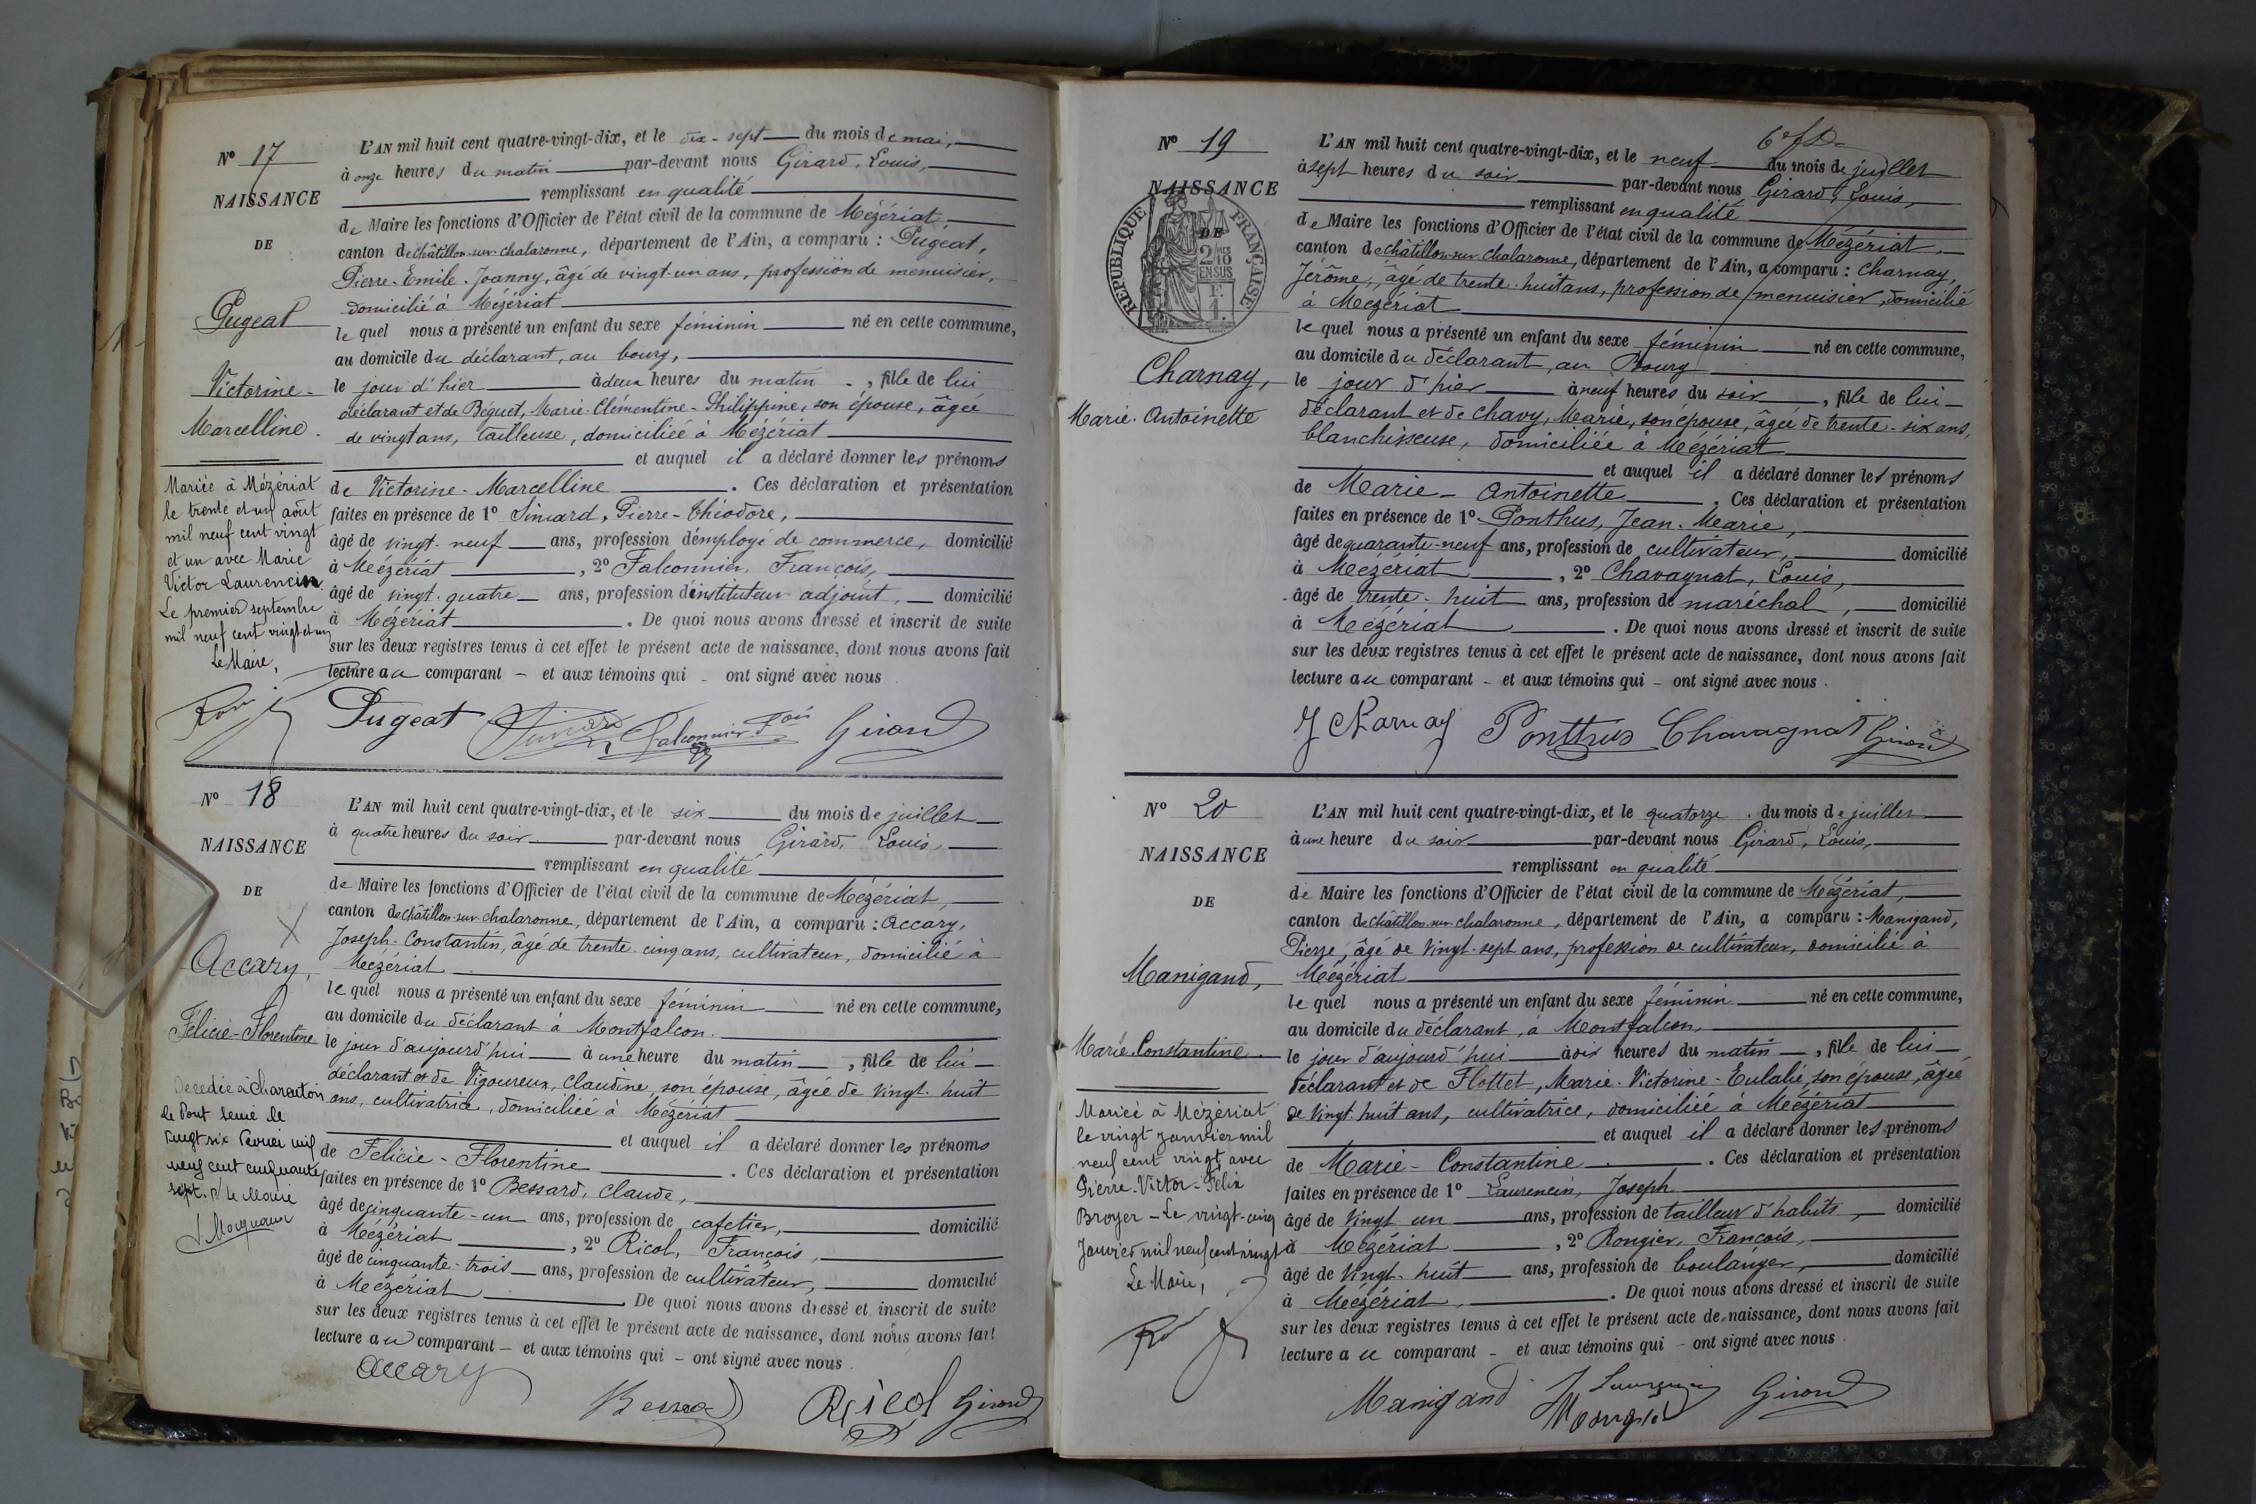 N° 17
NAISSANCE
DE
Pugeat
Victorine-
Marcelline.
Mariée à Mézériat
le trente et un août
mil neuf cent vingt
et un avec Marie
Victor Laurencin.
Le premier septembre
mil neuf cent vingt et un
Le Maire,
L'AN mil huit cent quatre-vingt-dix, et le dix-sept du mois de mai,
à onze heures du matin par-devant nous Girard, Louis,
remplissant en qualité
de Maire les fonctions d'Officier de l'état civil de la commune de Mézériat
canton de châtillon-sur-chalaronne, département de l'Ain, a comparu : Pugeat,
Pierre-Emile-Joanny, âgé de vingt-un ans, profession de menuisier,
domicilié à Mézériat
le quel nous a présenté un enfant du sexe féminin né en cette commune,
au domicile du déclarant, au bourg,
le jour d'hier à deux heures du matin, fille de lui
déclarant et de Béguet, Marie-Clémentine-Philippine, son épouse, âgée
de vingt ans, tailleuse, domiciliée à Mézériat
et auquel il a déclaré donner les prénoms
de Victorine-Marcelline. Ces déclaration et présentation
faites en présence de 1° Simard, Pierre-Théodore,
âgé de vingt-neuf ans, profession d'employé de commerce, domicilié
à Mézériat, 2° Falconnier, François,
âgé de vingt-quatre ans, profession d'instituteur adjoint, domicilié
à Mézériat. De quoi nous avons dressé et inscrit de suite
sur les deux registres tenus à cet effet le présent acte de naissance, dont nous avons fait
lecture au comparant - et aux témoins qui - ont signé avec nous.
Pugeat Falconnier Fois Girard
N° 18
NAISSANCE
DE
Accary,
Félicie-Florentine
Decedée à Charenton
le Pont Seine le
vingt six fevrier mil
neuf cent cinquante
sept. Le Maire
L'AN mil huit cent quatre-vingt-dix, et le six du mois de juillet
à quatre heures du soir par-devant nous Girard, Louis,
remplissant en qualité
de Maire les fonctions d'Officier de l'état civil de la commune de Mézériat,
canton de châtillon-sur-chalaronne, département de l'Ain, a comparu : Accary,
Joseph-Constantin, âgé de trente-cinq ans, cultivateur, domicilié à
Mézériat
le quel nous a présenté un enfant du sexe féminin né en cette commune,
au domicile du déclarant à Montfalcon.
le jour d'aujourd'hui à une heure du matin, fille de lui
déclarant et de Vigoureux, Claudine, son épouse, âgée de vingt-huit
ans, cultivatrice, domiciliée à Mézériat
et auquel il a déclaré donner les prénoms
de Félicie-Florentine. Ces déclaration et présentation
faites en présence de 1° Bessard, Claude,
âgé de cinquante-un ans, profession de cafetier, domicilié
à Mézériat, 2° Ricol, François,
âgé de cinquante-trois ans, profession de cultivateur, domicilié
à Mézériat. De quoi nous avons dressé et inscrit de suite
sur les deux registres tenus à cet effet le présent acte de naissance, dont nous avons fait
lecture au comparant - et aux témoins qui - ont signé avec nous.
Accary
Bessard Ricol Girard
N° 19
NAISSANCE
DE
RÉPUBLIQUE FRANÇAISE
2 10 EN SUS
Charnay,
Marie-Antoinette
L'AN mil huit cent quatre-vingt-dix, et le neuf du mois de juillet
à sept heures du soir par-devant nous Girard, Louis,
remplissant en qualité
de Maire les fonctions d'Officier de l'état civil de la commune de Mézériat,
canton de châtillon-sur-chalaronne, département de l'Ain, a comparu : Charnay,
Jérôme, âgé de trente-huit ans, profession de menuisier, domicilié
à Mézériat
le quel nous a présenté un enfant du sexe féminin né en cette commune,
au domicile du déclarant, au Bourg
le jour d'hier à neuf heures du soir, fille de lui
déclarant et de Chavy, Marie, son épouse, âgée de trente-six ans,
blanchisseuse, domiciliée à Mézériat
et auquel il a déclaré donner les prénoms
de Marie-Antoinette. Ces déclaration et présentation
faites en présence de 1° Ponthus, Jean-Marie,
âgé de quarante-neuf ans, profession de cultivateur, domicilié
à Mézériat, 2° Chavagnat, Louis,
âgé de trente-huit ans, profession de maréchal, domicilié
à Mézériat. De quoi nous avons dressé et inscrit de suite
sur les deux registres tenus à cet effet le présent acte de naissance, dont nous avons fait
lecture au comparant - et aux témoins qui - ont signé avec nous.
J Charnay Ponthus Chavagnat Girard
N° 20
NAISSANCE
DE
Manigand,
Marie-Constantine
Mariée à Mézériat
le vingt janvier mil
neuf cent vingt avec
Pierre-Victor-Félix
Broyer - Le vingt-cinq
Janvier mil neuf cent vingt
Le Maire,
L'AN mil huit cent quatre-vingt-dix, et le quatorze du mois de juillet
à une heure du soir par-devant nous Girard, Louis,
remplissant en qualité
de Maire les fonctions d'Officier de l'état civil de la commune de Mézériat,
canton de châtillon-sur-chalaronne, département de l'Ain, a comparu : Manigand,
Pierre, âgé de vingt-sept ans, profession de cultivateur, domicilié à
Mézériat
le quel nous a présenté un enfant du sexe féminin né en cette commune,
au domicile du déclarant, à Montfalcon,
le jour d'aujourd'hui à six heures du matin, fille de lui
déclarant et de Flottet, Marie-Victorine-Eulalie, son épouse, âgée
de vingt-huit ans, cultivatrice, domiciliée à Mézériat
et auquel il a déclaré donner les prénoms
de Marie-Constantine. Ces déclaration et présentation
faites en présence de 1° Laurencin, Joseph
âgé de vingt un ans, profession de tailleur d'habits, domicilié
à Mézériat, 2° Rongier, François,
âgé de vingt-huit ans, profession de boulanger, domicilié
à Mézériat. De quoi nous avons dressé et inscrit de suite
sur les deux registres tenus à cet effet le présent acte de naissance, dont nous avons fait
lecture au comparant - et aux témoins qui - ont signé avec nous
Manigand Laurencin Girard